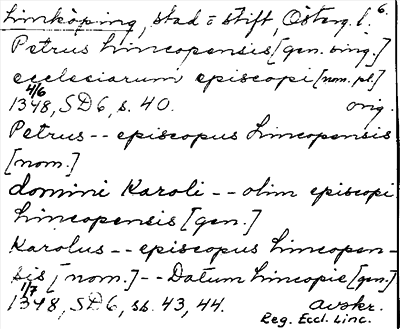 Linköping, stad o stift, Österg. l. 6.
Petrus lincopensis [gen. bing.]
ecclesiarum episcopi [nom. pl.]
4/6
1348, SD6, s. 40. orig.
Petrus -- episcopus lincopensis
[nom.]
domini Karoli -- olim episcopi
lincopensis [gen.]
Karolus -- episcopus lincopen-
sis [nom.] -- Datum Lincopie [gen.]
1/7
1348, SD6, ss. 43, 44. avskr.
Reg. Eccl. Linc.